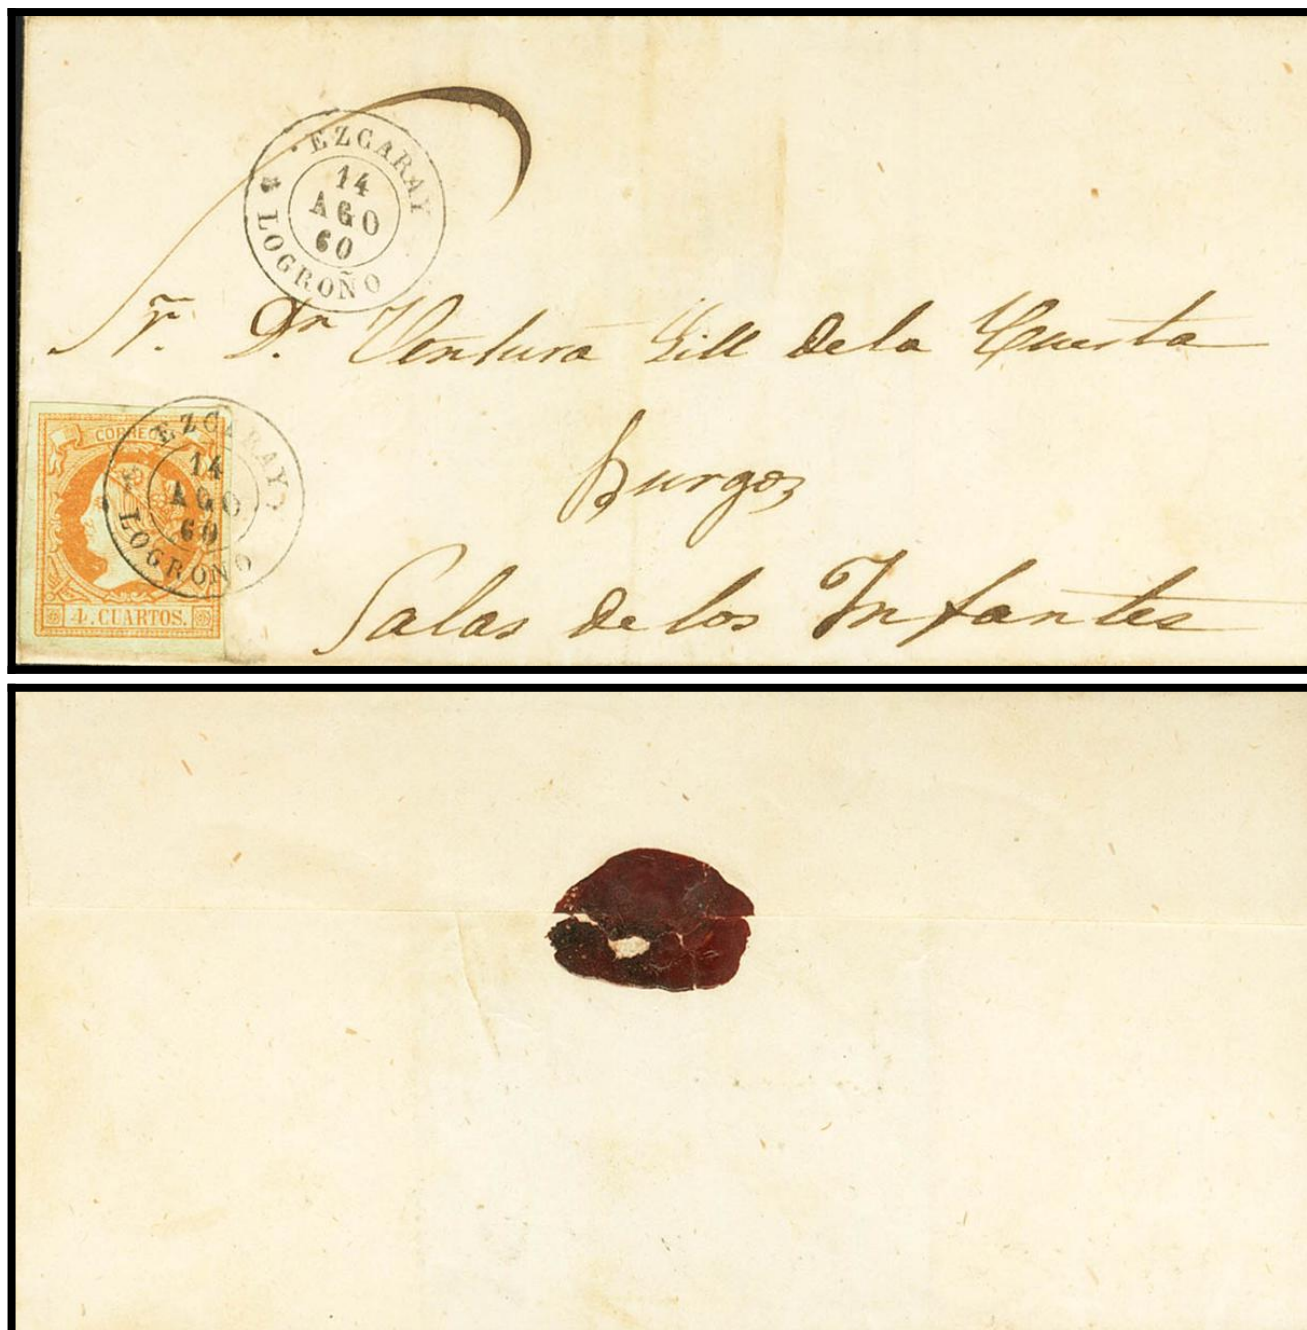 EZCARAY
14
AGO
60
LOGROÑO
Sr. Dn Ventura Gill de la Cuesta
CORREOS
EZCARAY
14
AGO
60
LOGROÑO
4. CUARTOS.
Burgos
Salas de los Infantes